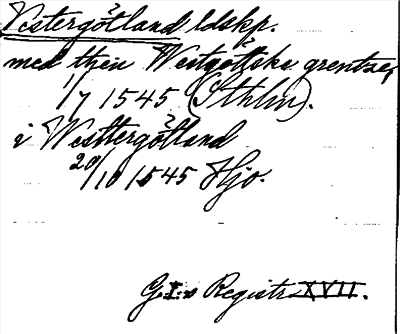 Vestergötland ldskp.
med then Westgötska grentzen
1/7 1545 (Sthlm).
i Westtergötland
20/10 1545 Hjo.
G. I:s Registr. XVII.